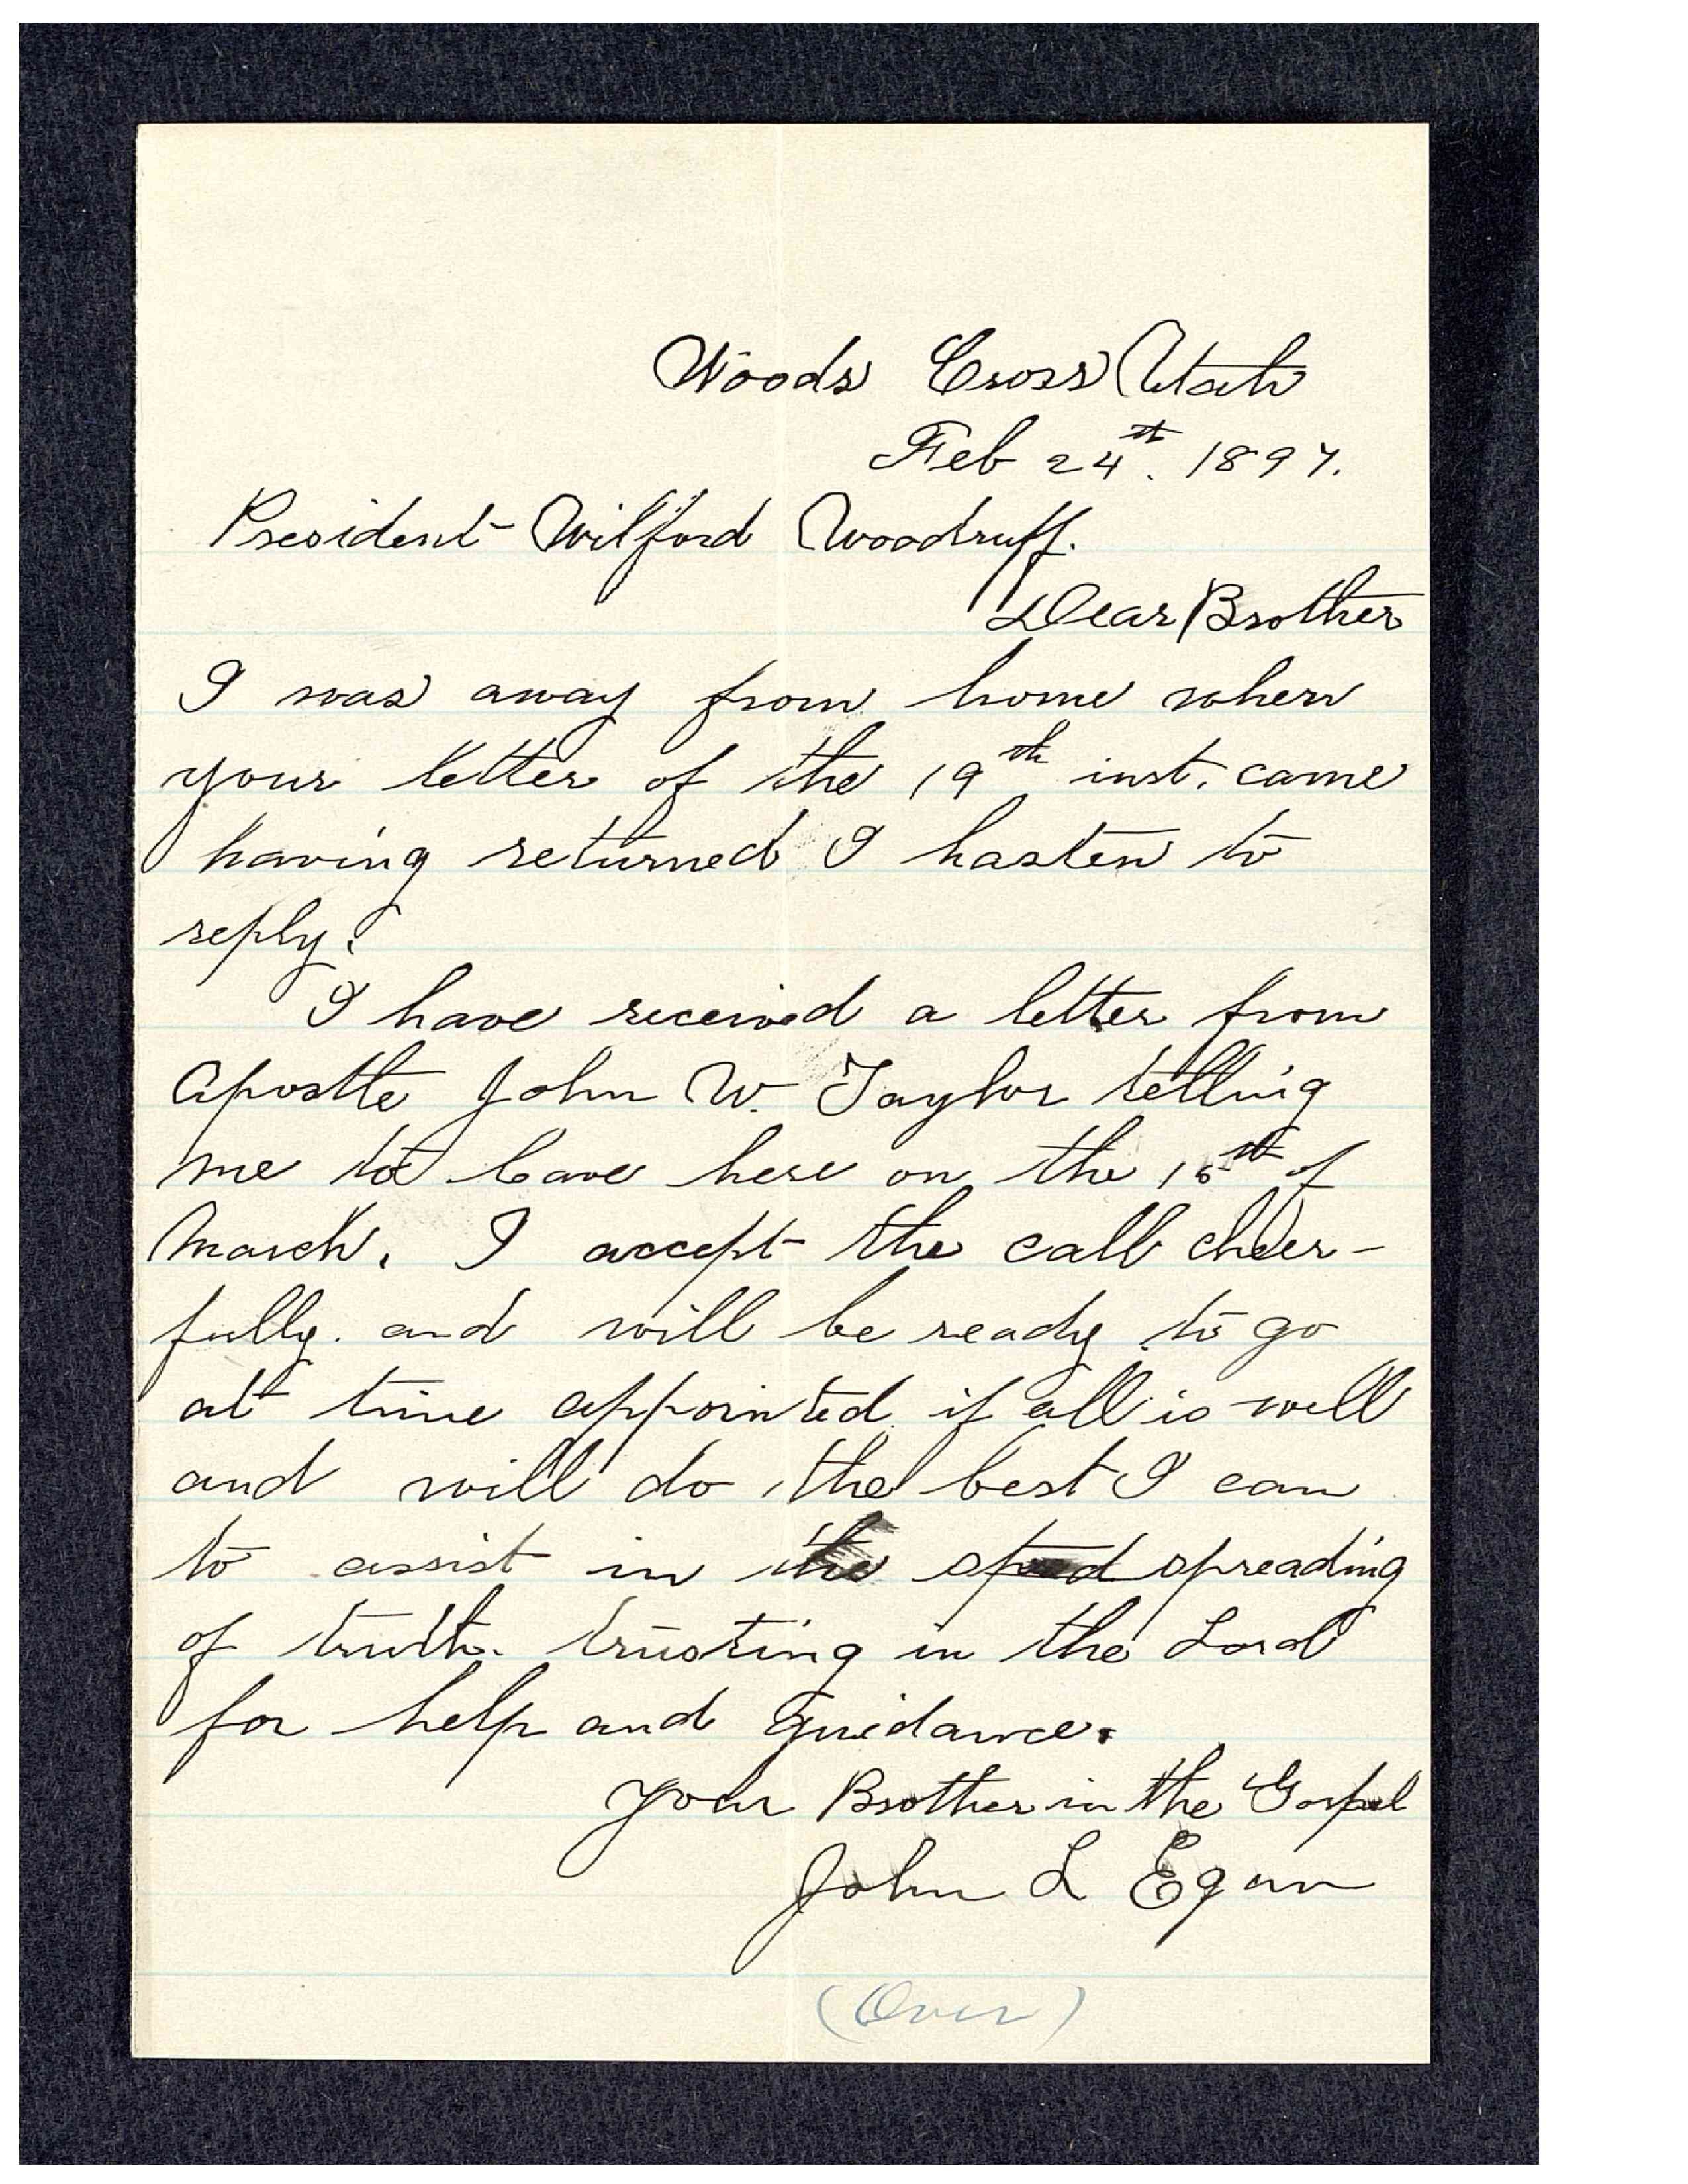 Woods Cross Utah
Feb 24th. 1897.
President Wilford Woodruff.
Dear Brother
I was away from home when
your letter of the 19th inst. came
having returned I hasten to
reply.
I have received a letter from
Apostle John W. Taylor telling
me to leave here on the 15th of
March. I accept the call cheer-
fully. and will be ready to go
at time appointed if all is well
and will do the best I can
to assist in the spreading
of truth. trusting in the Lord
for help and guidance.
Your Brother in the Gospel
John L Egan
(Over)